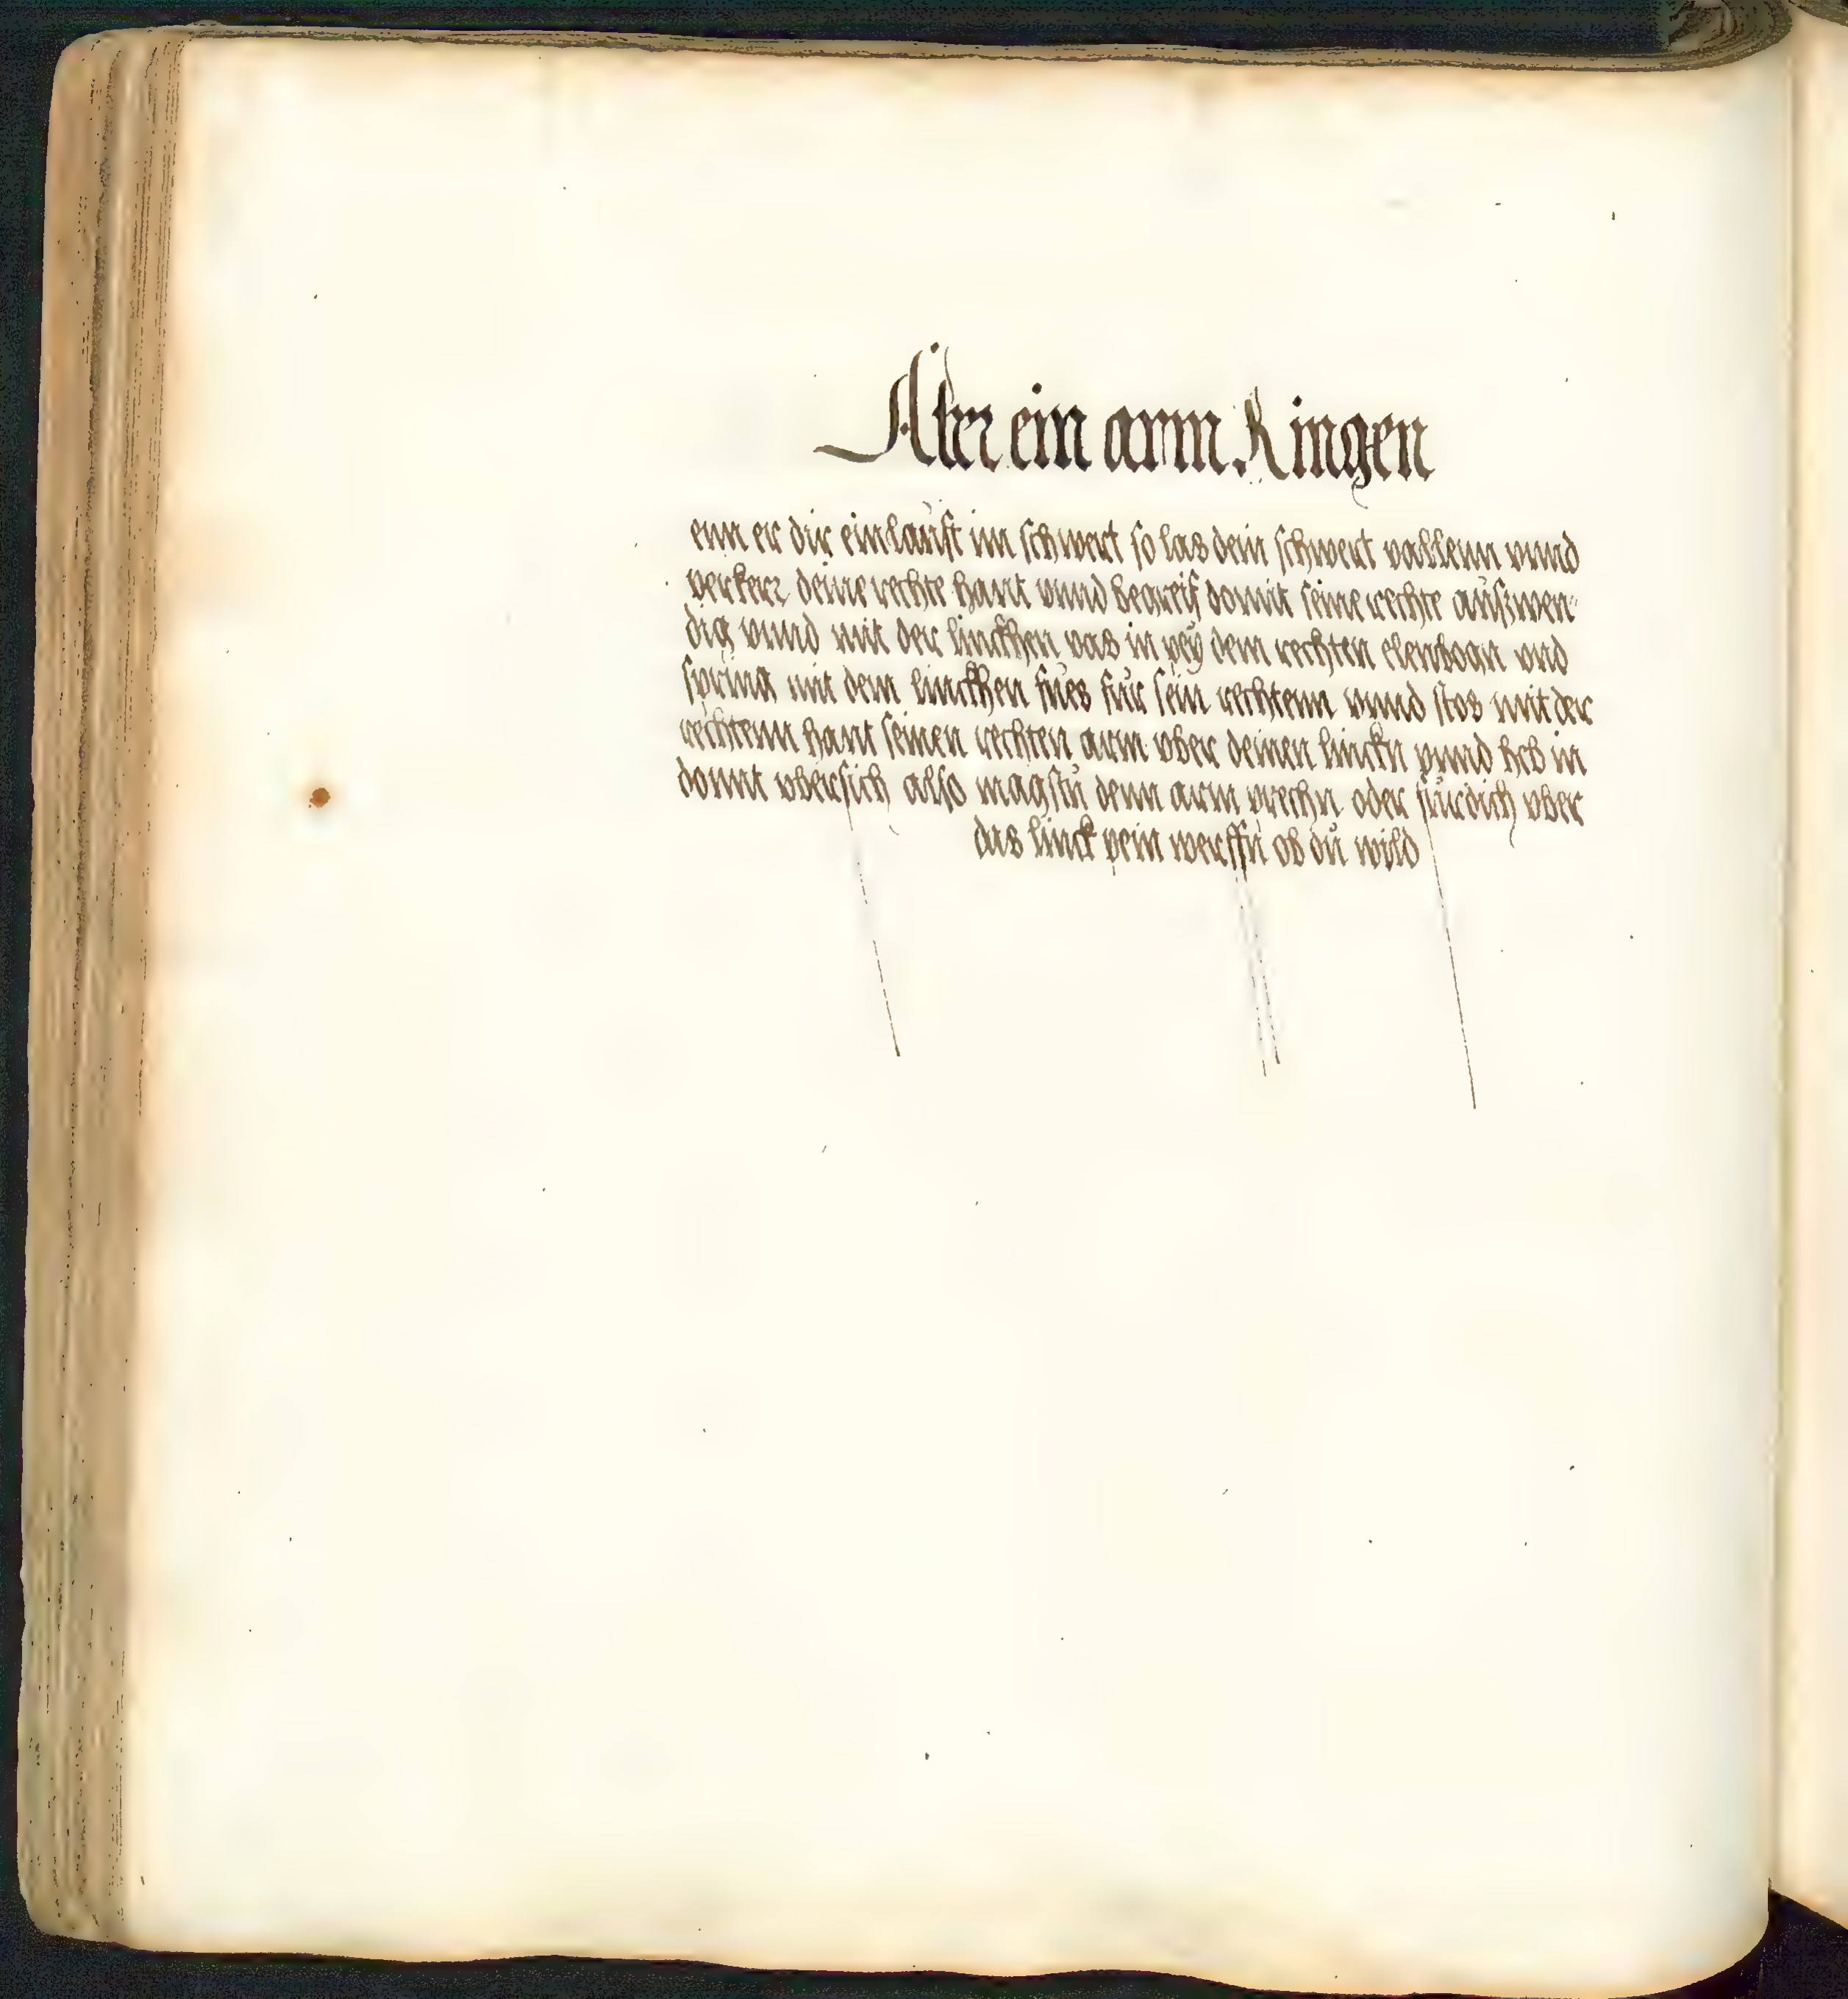 Aber ein arm Ringen
enn er dir einlaüft im schwert so las dein schwert vallenn vnnd
verkerr deine rechte hant vnnd begreif domit seine rechte aüßwen
dig vnnd mit der linckhen vas in peÿ dem rechten elenbogn vnd
spring mit dem linckhen fües für sein rechtenn vnnd stos mit der
rechtenn hant seinen rechten arm vber deinen linckn vnnd heb in
domit vbersich also magstü denn arm prechn oder fürdich vber
das linck pein werffn ob dü wild